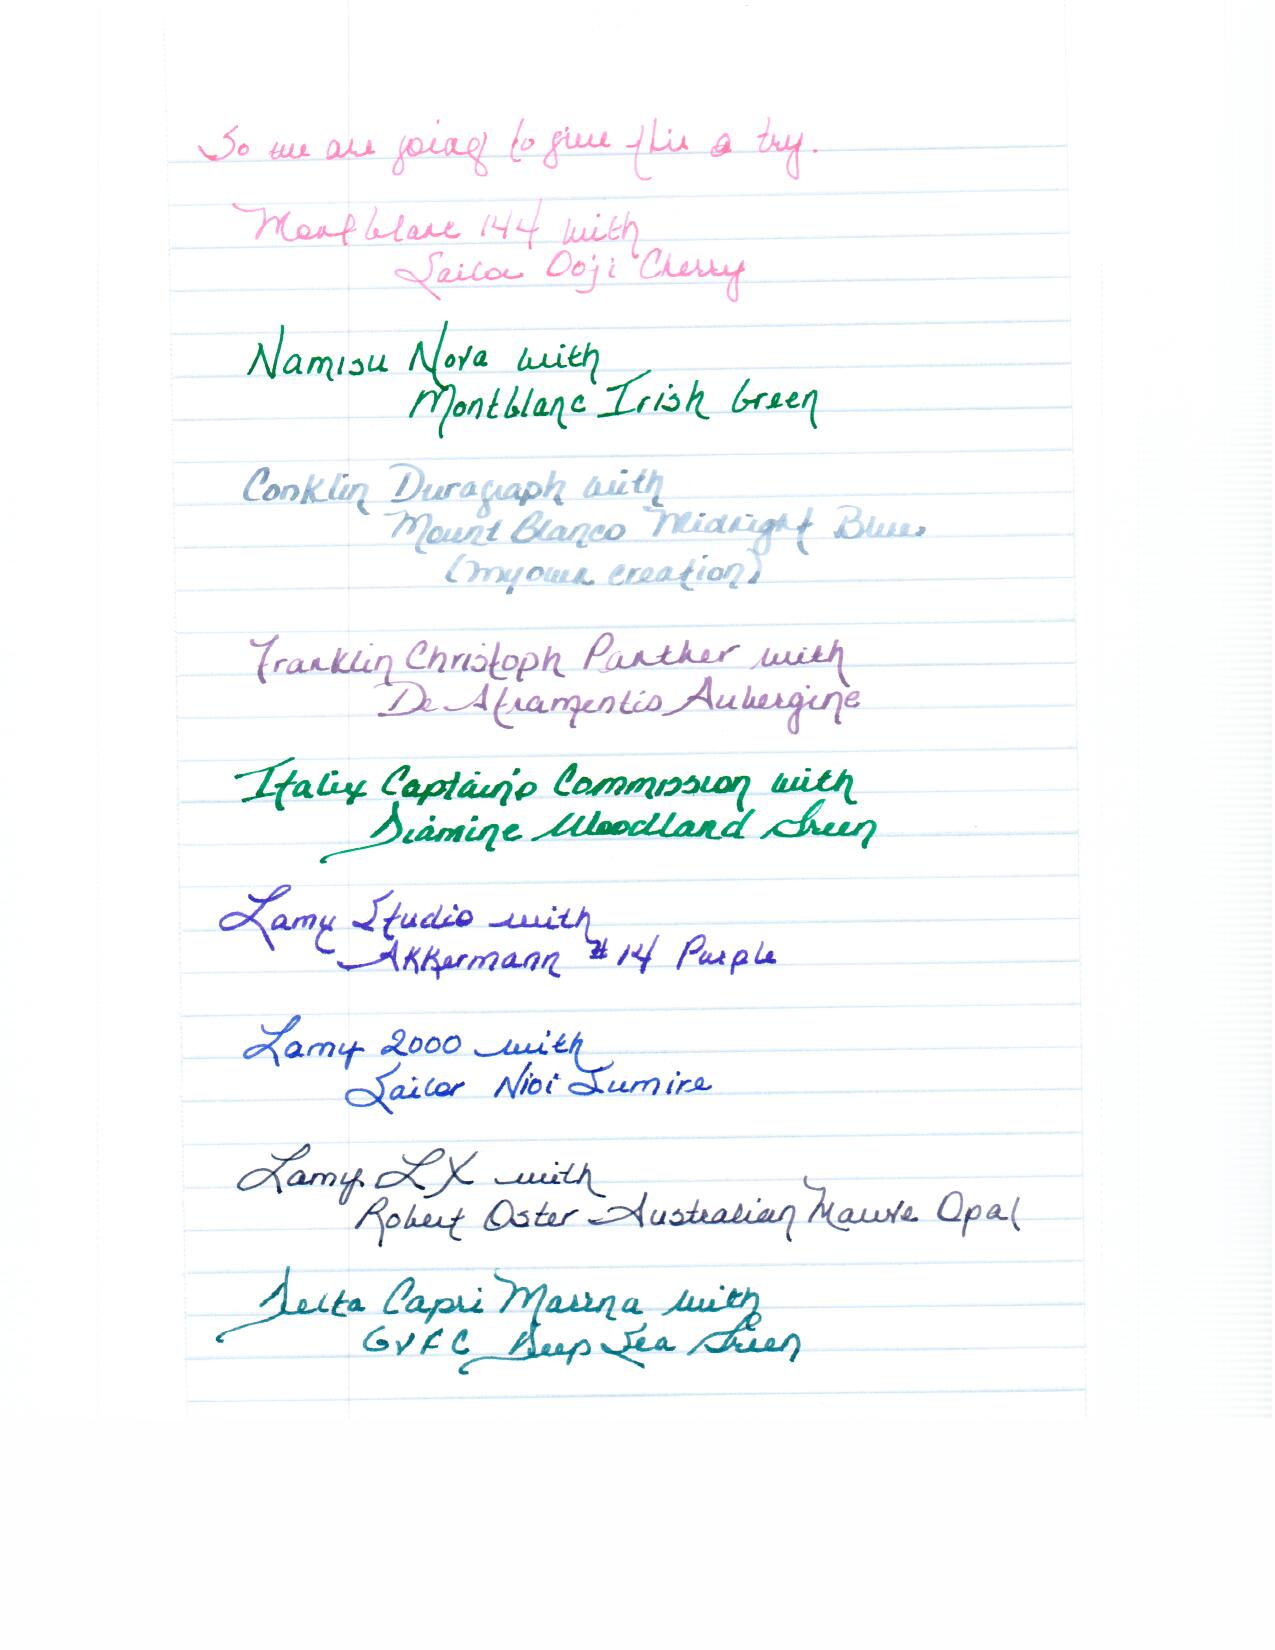 So we are going to give this a try.
Montblanc 144 with
Sailor Ooji Cherry
Namisu Nova with
Montblanc Irish Green
Conklin Duragraph with
Mount Blanco Midnight Blue.
(my own creation)
Franklin Christoph Panther with
De Atramentis Aubergine
Italix Captain's Commission with
Diamine Woodland Green
Lamy Studio with
Akkermann #14 Purple
Lamy 2000 with
Sailor Nioi Sumire
Lamy LX with
Robert Oster Australian Mauve Opal
Delta Capri Marina with
GVFC Deep Sea Green